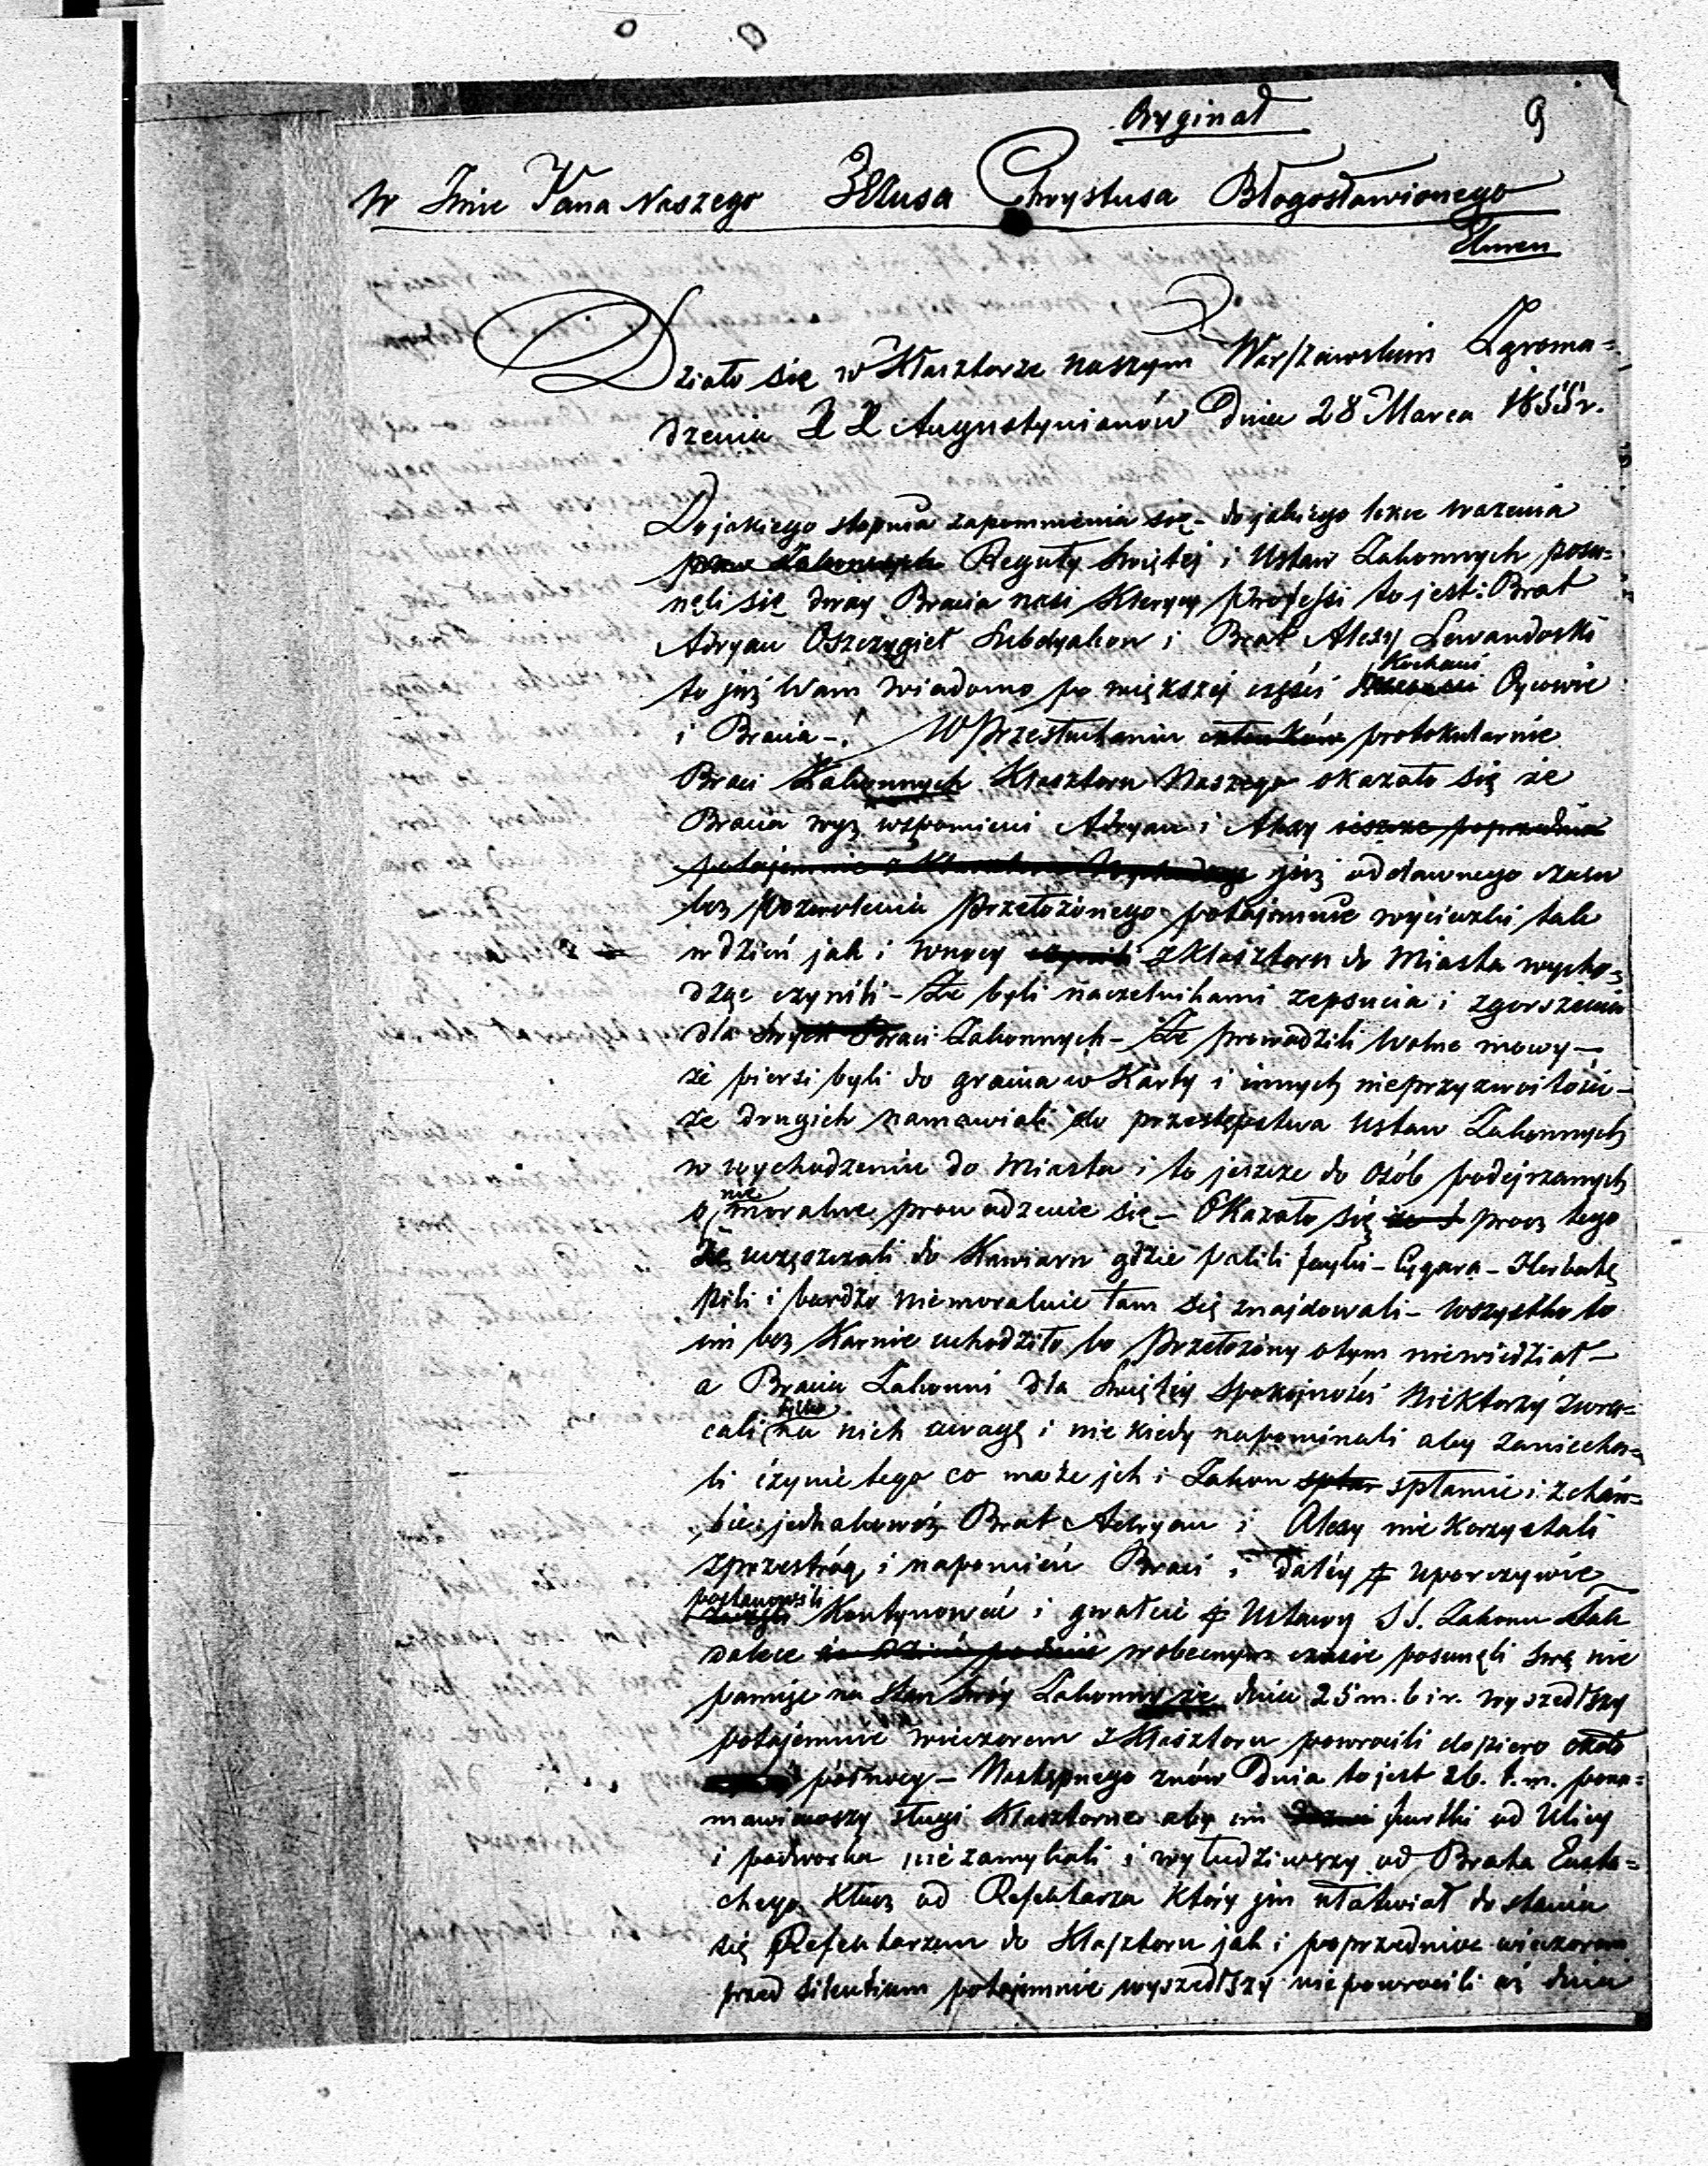 Oryginał
9
W Imie Pana Naszego JEzusa Chrystusa Błogosławionego
Amen
Działo się w Klasztorze naszym Warszawskim Zgroma=
dzenia XX Augustynianów Dnia 28 Marca 1855 r.
Do jakiego stopnia zapomnienia się - do jakiego lekce ważenia
praw Zakonnych Reguły Świętej i Ustaw Zakonnych posu=
nęli się dway Bracia nasi Klerycy Professi to jest: Brat
Adryan Oszczygieł Subdyakon i Brat Alexy Lewandoski
Kochani
to już Wam wiadomo po większej części Oycowie
i Bracia -. W Przesłuchaniu członków protokularnie
Braci Zakonnych Klasztoru Naszego okazało się że
Bracia wyż wspomieni Adryan i Alexy jeszcze poprzednio
potajemnie z Klasztoru wychodząc już od dawnego czasu
bez pozwolenia Przełożonego potajemnie wycieczki tak
w dzień jak i w nocy czynili z Klasztoru do Miasta wycho=
dząc czynili - Że byli naczelnikami zepsucia i zgorszenia
dla swych Braci Zakonnych - Że prowadzili wolne mowy -
że piersi byli do grania w Karty i innych nieprzyzwoitości -
że drugich namawiali do przestępstwa Ustaw Zakonnych
w wychodzeniu do Miasta i to jeszcze do osób podejrzanych
nie
o moralne prowadzenie się - Okazało się że i procz tego
że uczęszczali do Kawiarn gdzie palili faiki - Cygara - Herbatę
pili i bardzo niemoralnie tam się znajdowali - wszystko to
im bez Karnie uchodziło bo Przełożony o tym niewiedział -
a Bracia Zakonni dla Świętej Spokojności Niektorzy zwra=
tylko
cali na nich uwagę i nie kiedy napominali aby zaniecha=
li czynić tego co może jch i Zakon splam splamić i zchań=
bić: jednakowóż Brat Adryan i Alexy nie Korzystali
z przestróg i napomień Braci i daléy uporczywie
postanowili
zaczęli Kontynować i gwałcić Ustawy SS. Zakonu Tak
dalece w obecnym czasie posunęli się nie
pamięc na stan swóy Zakonny że dnia 25 m. b i r. wyszedłszy
potajémnie wieczorem z Klasztoru powrócili dopiero około
północy - Następnego znów Dnia to jest 26. t. m. pona=
mawiawszy sługi Klasztorne aby im furtki od Ulicy
i podworka nie zamykali i wyłudziwszy od Brata Eusta=
chego Klucz od Refektarza który jim ułatwiał dostania
się Refektarzem do Klasztoru jak i poprzednice wieczorem
przed silentium potajemnie wyszedłszy niepowrócili aż dnia